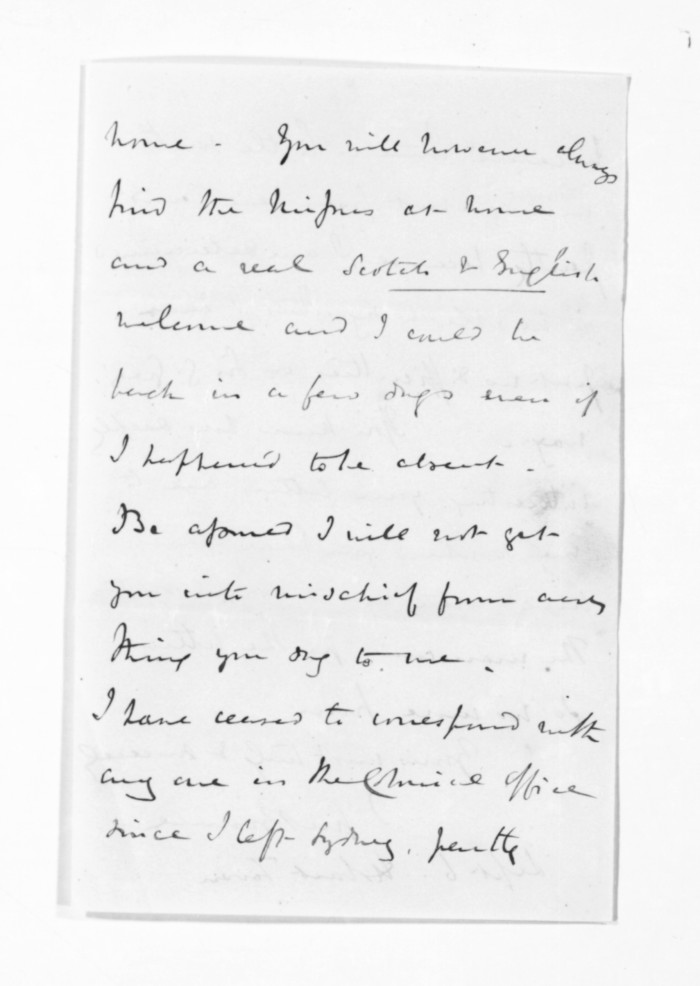 home - You will however always
find the Missus at home
and a real Scotch & English
welcome and I could be
back in a few days even if
I happened to be absent -
Be assured I will not get
you into mischief from any
thing you say to me.
I have ceased to correspond with
any one in the Office
since I left Sydney, partly